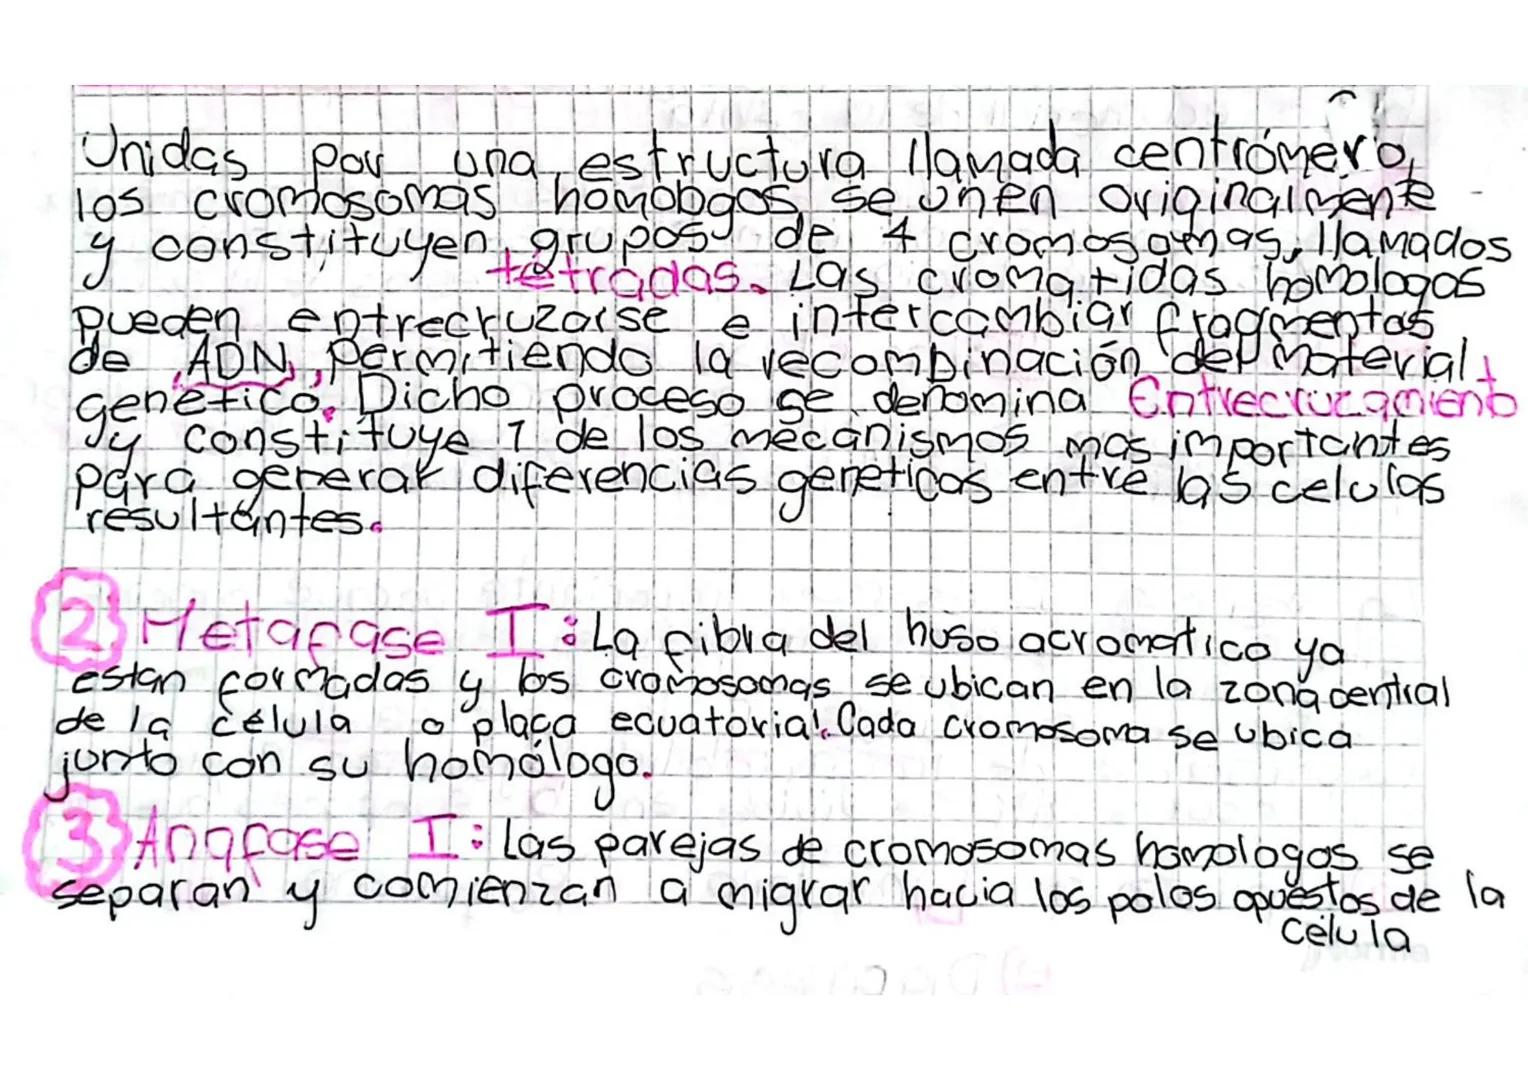 Unidas por una estructura llamada centrómero,
los cromosomas homologos se unen originalmente
y constituyen grupos de 4 cromosomas, llamados
tétradas. Las cromatidas homologas
pueden entrecruzarse e intercambiar fragmentos
de ADN, permitiendo la recombinación del material
genético. Dicho proceso se denomina Entrecrucamiento
y constituye 1 de los mecanismos mas importantes
para generar diferencias geneticas entre las celulas
resultantes.
2 Metafase I: La fibra del huso acromatico ya
estan formadas y los cromosomas se ubican en la zona central
de la célula o placa ecuatorial. Cada cromosoma se ubica
junto con su homólogo.
3 Anafase I: Las parejas de cromosomas homologos se
separan y comienzan a migrar hacia los polos opuestos de la
célula